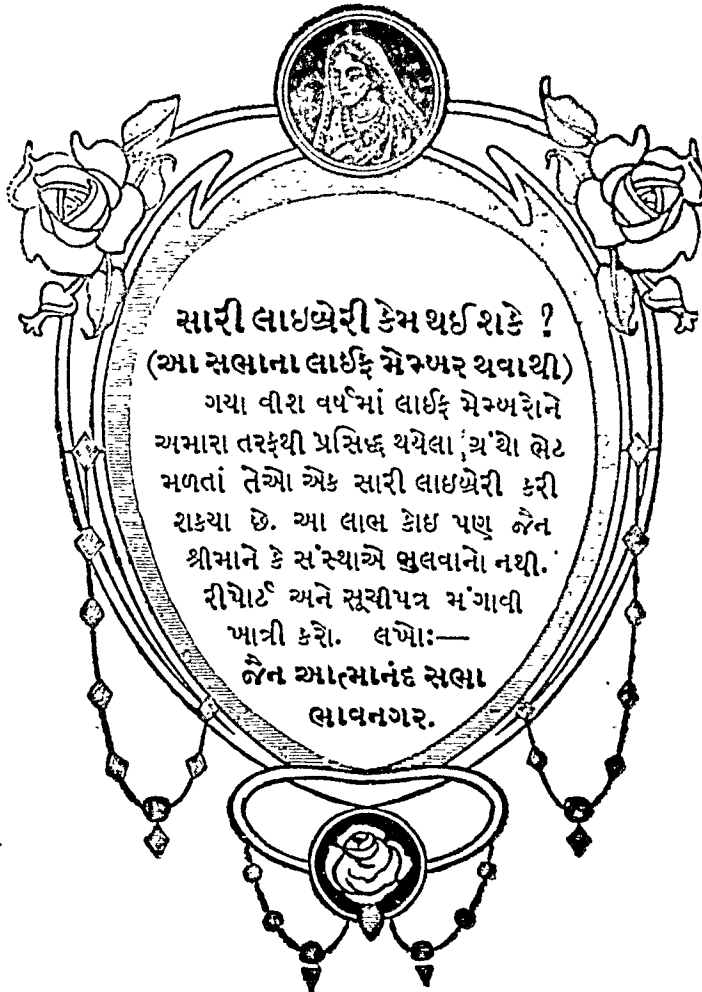 સારી લાઇબ્રેરી કેમ થઈ શકે ?
(આ સભાના લાઈફ મેમ્બર થવાથી)
ગયા વીશ વર્ષમાં લાઈફ મેમ્બરોને
અમારા તરફથી પ્રસિદ્ધ થયેલા ગ્રંથો ભેટ
મળતાં તેઓ એક સારી લાઇબ્રેરી કરી
શકયા છે. આ લાભ કોઇ પણ જૈન
શ્રીમાને કે સંસ્થાએ ભુલવાનો નથી.
રીપોર્ટ અને સૂચીપત્ર મંગાવી
ખાત્રી કરો. લખો:—
જૈન આત્માનંદ સભા
ભાવનગર.